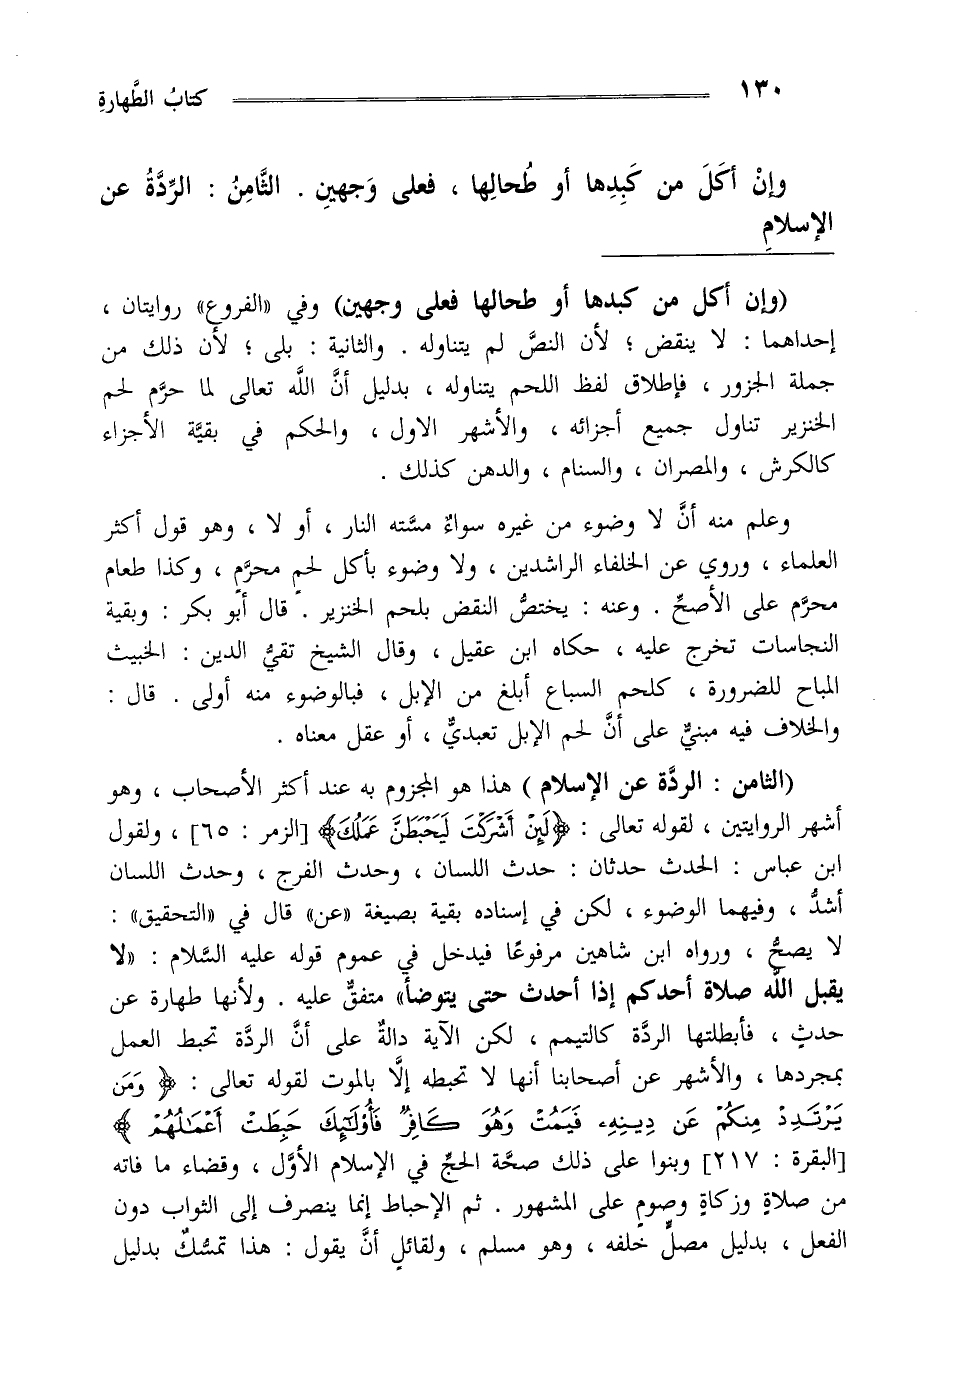 ١٣٠ كتابُ الطَّهارةِ
وإنْ أكَلَ من كَبِدِها أو طُحالِها ، فعلى وَجهينِ . الثَّامِنُ : الرِّدَّةُ عن
الإسلامِ
(وإن أكل من كبدها أو طحالها فعلى وجهين) وفي «الفروع» روايتان ،
إحداهما : لا ينقض ؛ لأن النصَّ لم يتناوله . والثانية : بلى ؛ لأن ذلك من
جملة الجزور ، فإطلاق لفظ اللحم يتناوله ، بدليل أنَّ اللَّه تعالى لما حرَّم لحم
الخنزير تناول جميع أجزائه ، والأشهر الاول ، والحكم في بقيَّة الأجزاء
كالكرش ، والمصران ، والسنام ، والدهن كذلك .
وعلم منه أنَّ لا وضوء من غيره سواءٌ مسَّته النار ، أو لا ، وهو قول أكثر
العلماء ، وروي عن الخلفاء الراشدين ، ولا وضوء بأكل لحمٍ محرَّمٍ ، وكذا طعام
محرَّم على الأصحِّ . وعنه : يختصُّ النقض بلحم الخنزير . قال أبو بكر : وبقية
النجاسات تخرج عليه ، حكاه ابن عقيل ، وقال الشيخ تقيُّ الدين : الخبيث
المباح للضرورة ، كلحم السباع أبلغ من الإبل ، فبالوضوء منه أولى . قال :
والخلاف فيه مبنيٌّ على أنَّ لحم الإبل تعبديٌّ ، أو عقل معناه .
(الثامن : الردَّة عن الإسلام ) هذا هو المجزوم به عند أكثر الأصحاب ، وهو
أشهر الروايتين ، لقوله تعالى : ﴿لَئِنْ أَشْرَكْتَ لَيَحْبَطَنَّ عَمَلُكَ﴾ [الزمر : ٦٥] ، ولقول
ابن عباس : الحدث حدثان : حدث اللسان ، وحدث الفرج ، وحدث اللسان
أشدُّ ، وفيهما الوضوء ، لكن في إسناده بقية بصيغة «عن» قال في «التحقيق» :
لا يصحُّ ، ورواه ابن شاهين مرفوعًا فيدخل في عموم قوله عليه السَّلام : «لا
يقبل اللَّه صلاة أحدكم إذا أحدث حتى يتوضأ» متفقٌ عليه . ولأنها طهارة عن
حدثٍ ، فأبطلتها الردَّة كالتيمم ، لكن الآية دالةٌ على أنَّ الردَّة تحبط العمل
بمجردها ، والأشهر عن أصحابنا أنها لا تحبطه إلَّا بالموت لقوله تعالى : ﴿ وَمَن
يَرْتَدِدْ مِنكُمْ عَن دِينِهِ فَيَمُتْ وَهُوَ كَافِرٌ فَأُولَٰئِكَ حَبِطَتْ أَعْمَالُهُمْ ﴾
[البقرة : ٢١٧] وبنوا على ذلك صحَّة الحجِّ في الإسلام الأوَّل ، وقضاء ما فاته
من صلاةٍ وزكاةٍ وصومٍ على المشهور . ثم الإحباط إنما ينصرف إلى الثواب دون
الفعل ، بدليل مصلٍّ خلفه ، وهو مسلم ، ولقائلٍ أنَّ يقول : هذا تمسُّكٌ بدليل